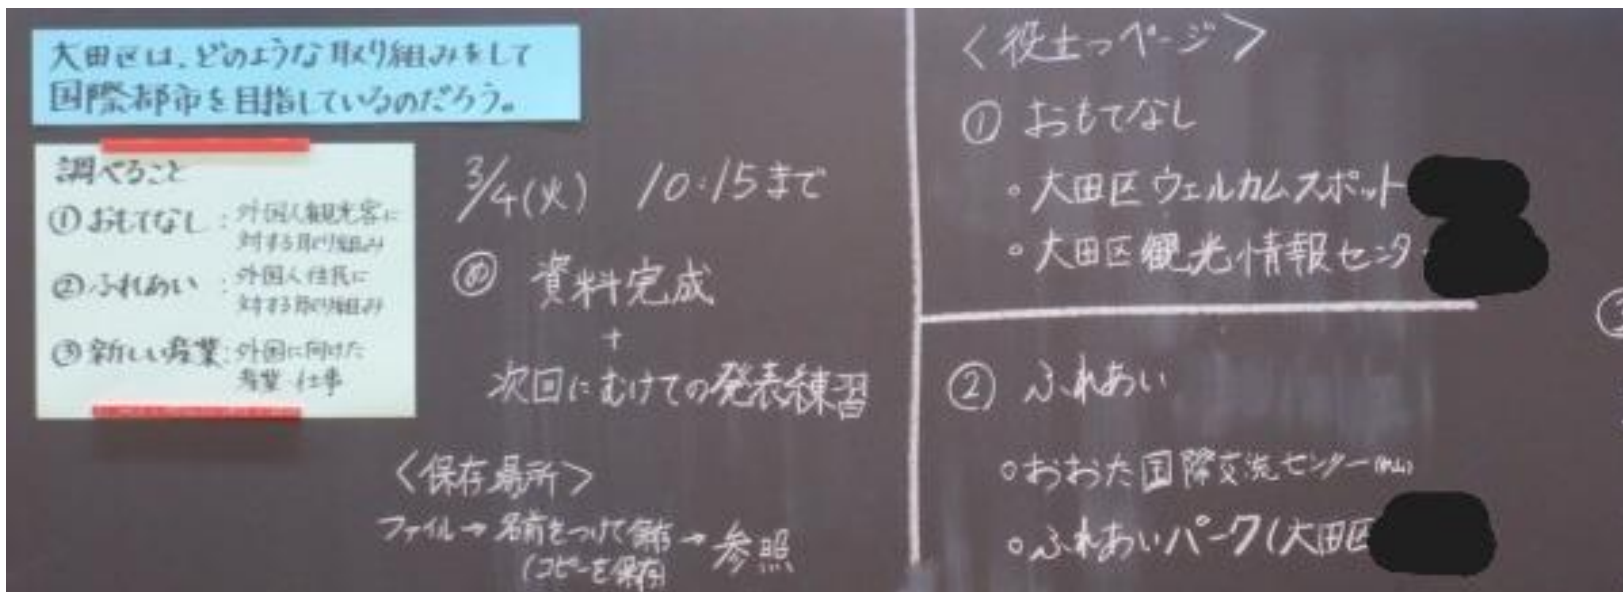 大田区は、どのような取り組みをして
国際都市を目指しているのだろう。
調べること
①おもてなし：外国人観光客に
対する取り組み
②ふれあい：外国人住民に
対する取り組み
③新しい産業：外国に向けた
産業・仕事
3/4(火) 10:15まで
め 資料完成
+
次回にむけての発表練習
〈保存場所〉
ファイル→名前をつけて保存→参照
(コピーを保存)
〈役立つページ〉
① おもてなし
○大田区ウェルカムスポット
○大田区観光情報センタ
② ふれあい
○おおた国際交流センター
○ふれあいパーク(大田区